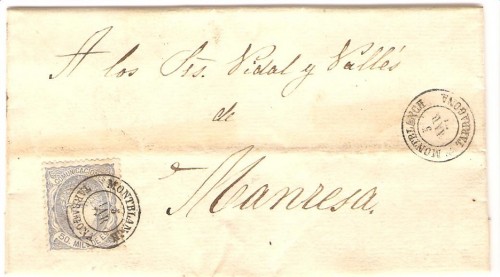 A los Srs. Vidal y Vallés
de
Manresa.
MONTBLANCH
TARRAGONA
COMUNICACIONES
50 MILS DE E
MONTBLANCH
TARRAGONA